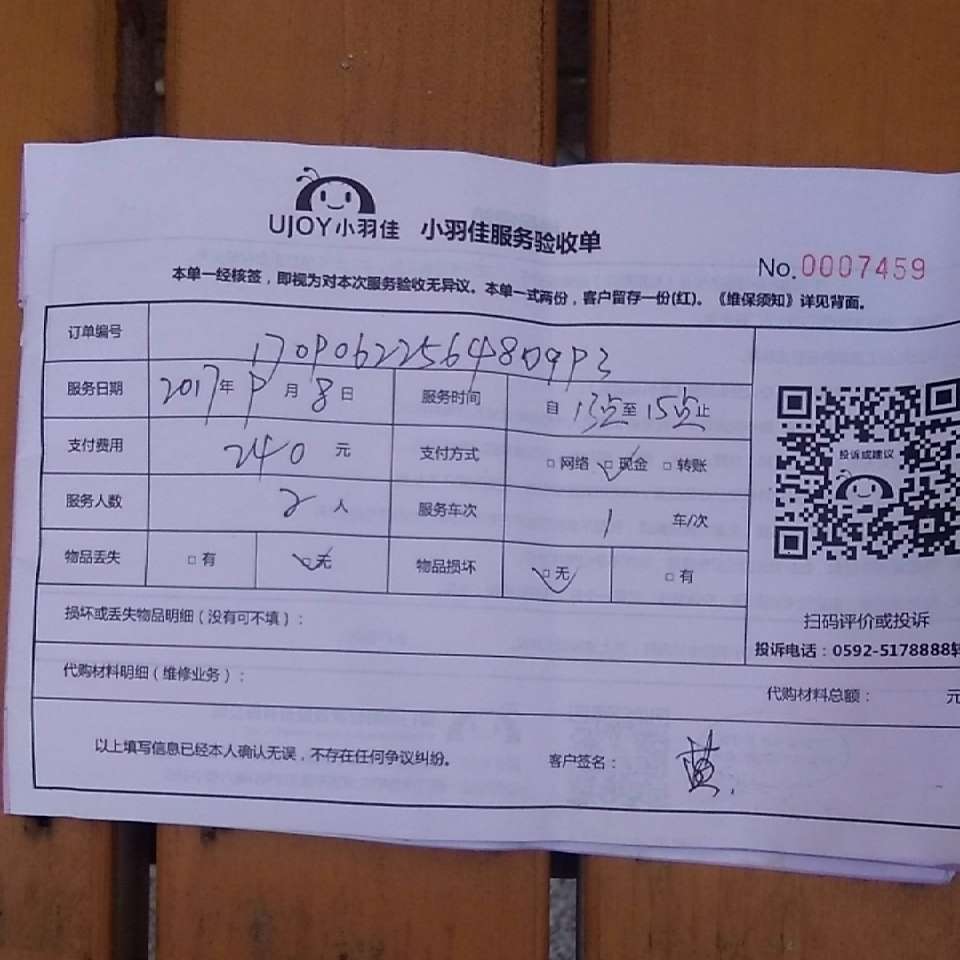 UJOY小羽佳 小羽佳服务验收单
No.0007459
本单一经核签，即视为对本次服务验收无异议。本单一式两份，客户留存一份(红)。《维保须知》详见背面。
订单编号 170906225648D9P3
服务日期 2017年 9月 8日 服务时间 自 13点至 15点止
支付费用 240 元 支付方式 □网络 □现金 □转账
投诉或建议
服务人数 2 人 服务车次 1 车/次
物品丢失 □有 □无 物品损坏 □无 □有
损坏或丢失物品明细（没有可不填）：
扫码评价或投诉
投诉电话：0592-5178888转
代购材料明细（维修业务）：
代购材料总额： 元
以上填写信息已经本人确认无误，不存在任何争议纠纷。 客户签名： 黄